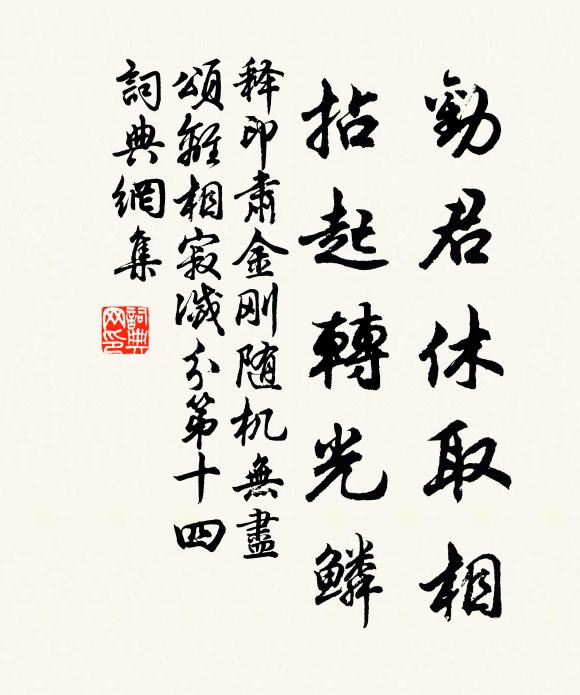 勸君休取相
拈起轉光鱗
释印肃金刚随机無盡
頌離相寂滅分第十四
詞典網集
詞典
网印